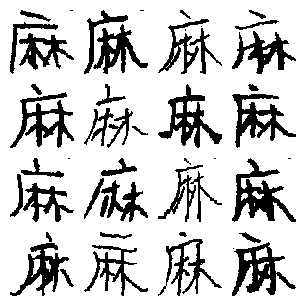 麻麻麻麻
麻麻麻麻
麻麻麻麻
麻麻麻麻